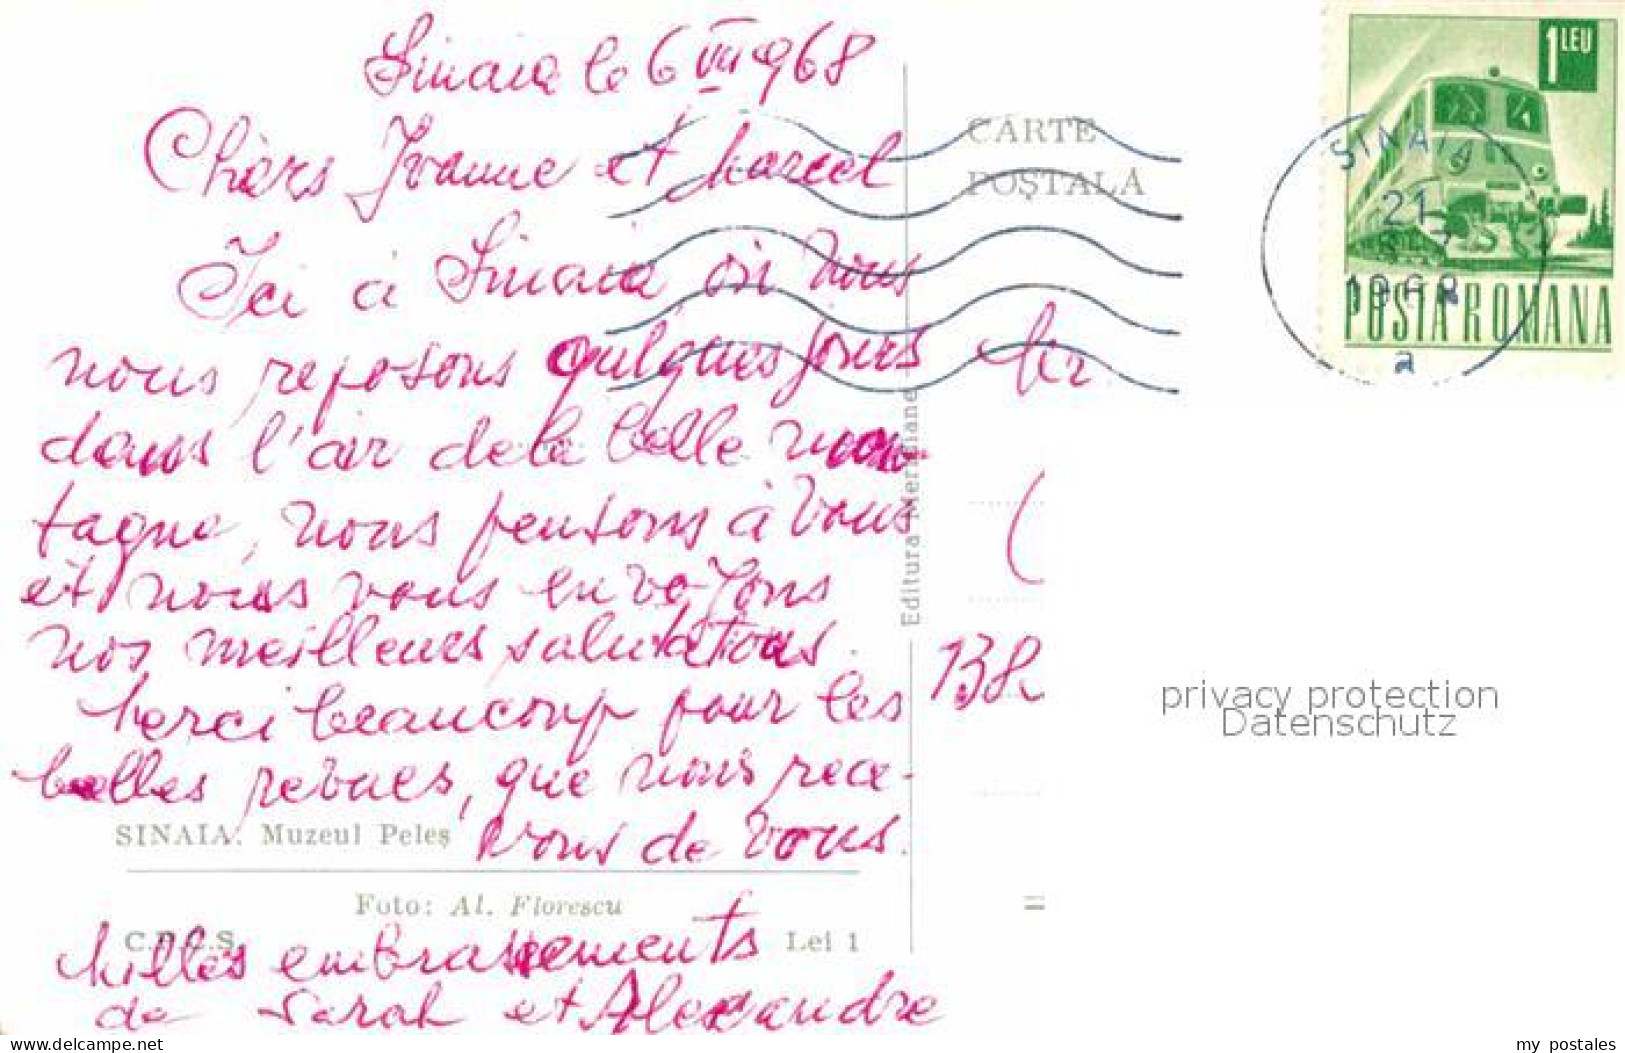 Sinaia le 6 VII 968
Chèrs Ivanne et Marcel
Ici à Sinaia où nous
nous reposons quelques jours
dans l'air de la belle mon-
tagne, nous pensons à vous
et nous vous envoyons
nos meilleurs salutations.
Merci beaucoup pour les
belles revues, que nous rece-
vons de vous.
Milles embrassements
de Sarah et Alexandre
CARTE
POȘTALA
Editura Meridiane
SINAIA. Muzeul Peleș
Foto: Al. Florescu
C.P.C.S.
Lei 1
1 LEU
POSTA ROMANA
SINAIA
21
1968
a
privacy protection
Datenschutz
www.delcampe.net
my_postales